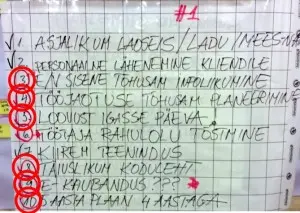 #1
√1. ASJALIKUM LAOSEIS/LADU/MEESKOND
√2. PERSONAALNE LÄHENEMINE KLIENDILE
3. SISENE TÕHUSAM INFOLIIKUMINE
4. TÖÖJAOTUSE TÕHUSAM PLANEERIMINE
5. LOOVUST IGASSE PÄEVA
6. TÖÖTAJA RAHULOLU TÕSTMINE
√7. KIIREM TEENINDUS
8. TÄIUSLIKUM KODULEHT
9. E-KAUBANDUS ???
10. SAASTA PLAAN 4 AASTAGA